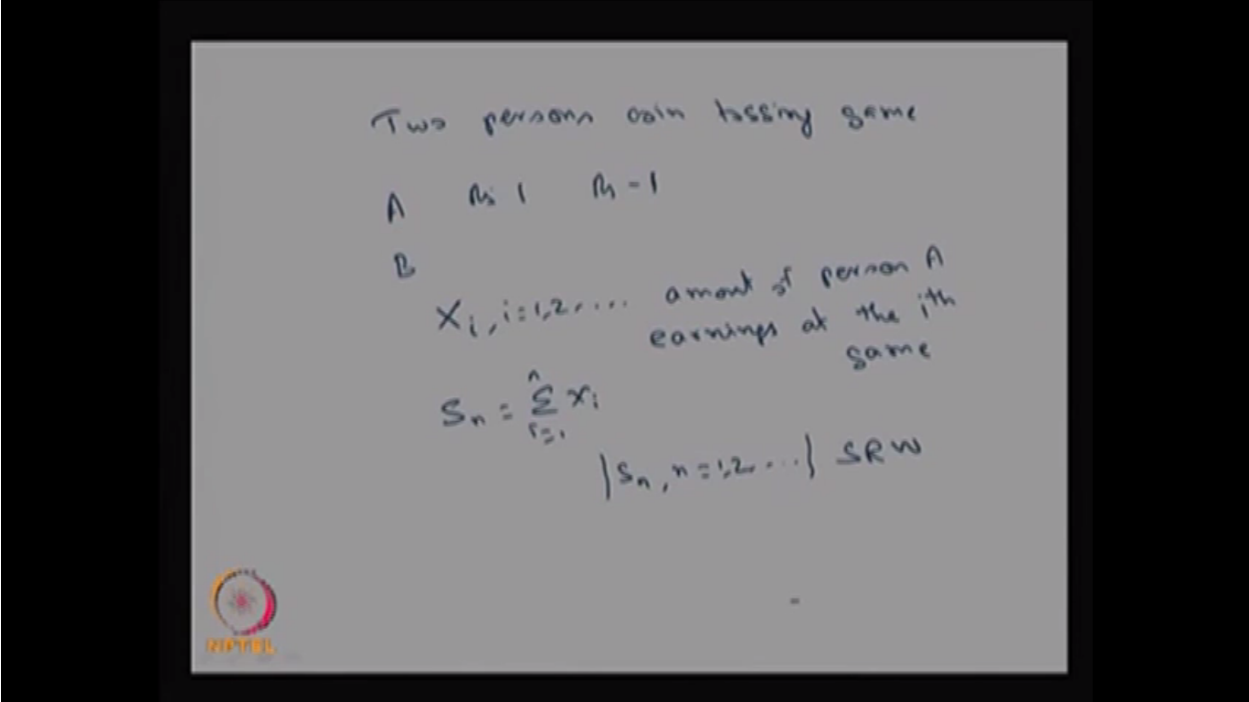 Two persons coin tossing game
A Rs 1 Rs -1
B
X_i, i=1,2,... amout of person A
earnings at the ith
game
S_n = Σ_{i=1}^{n} X_i
{S_n, n=1,2,...} SRW
NPTEL